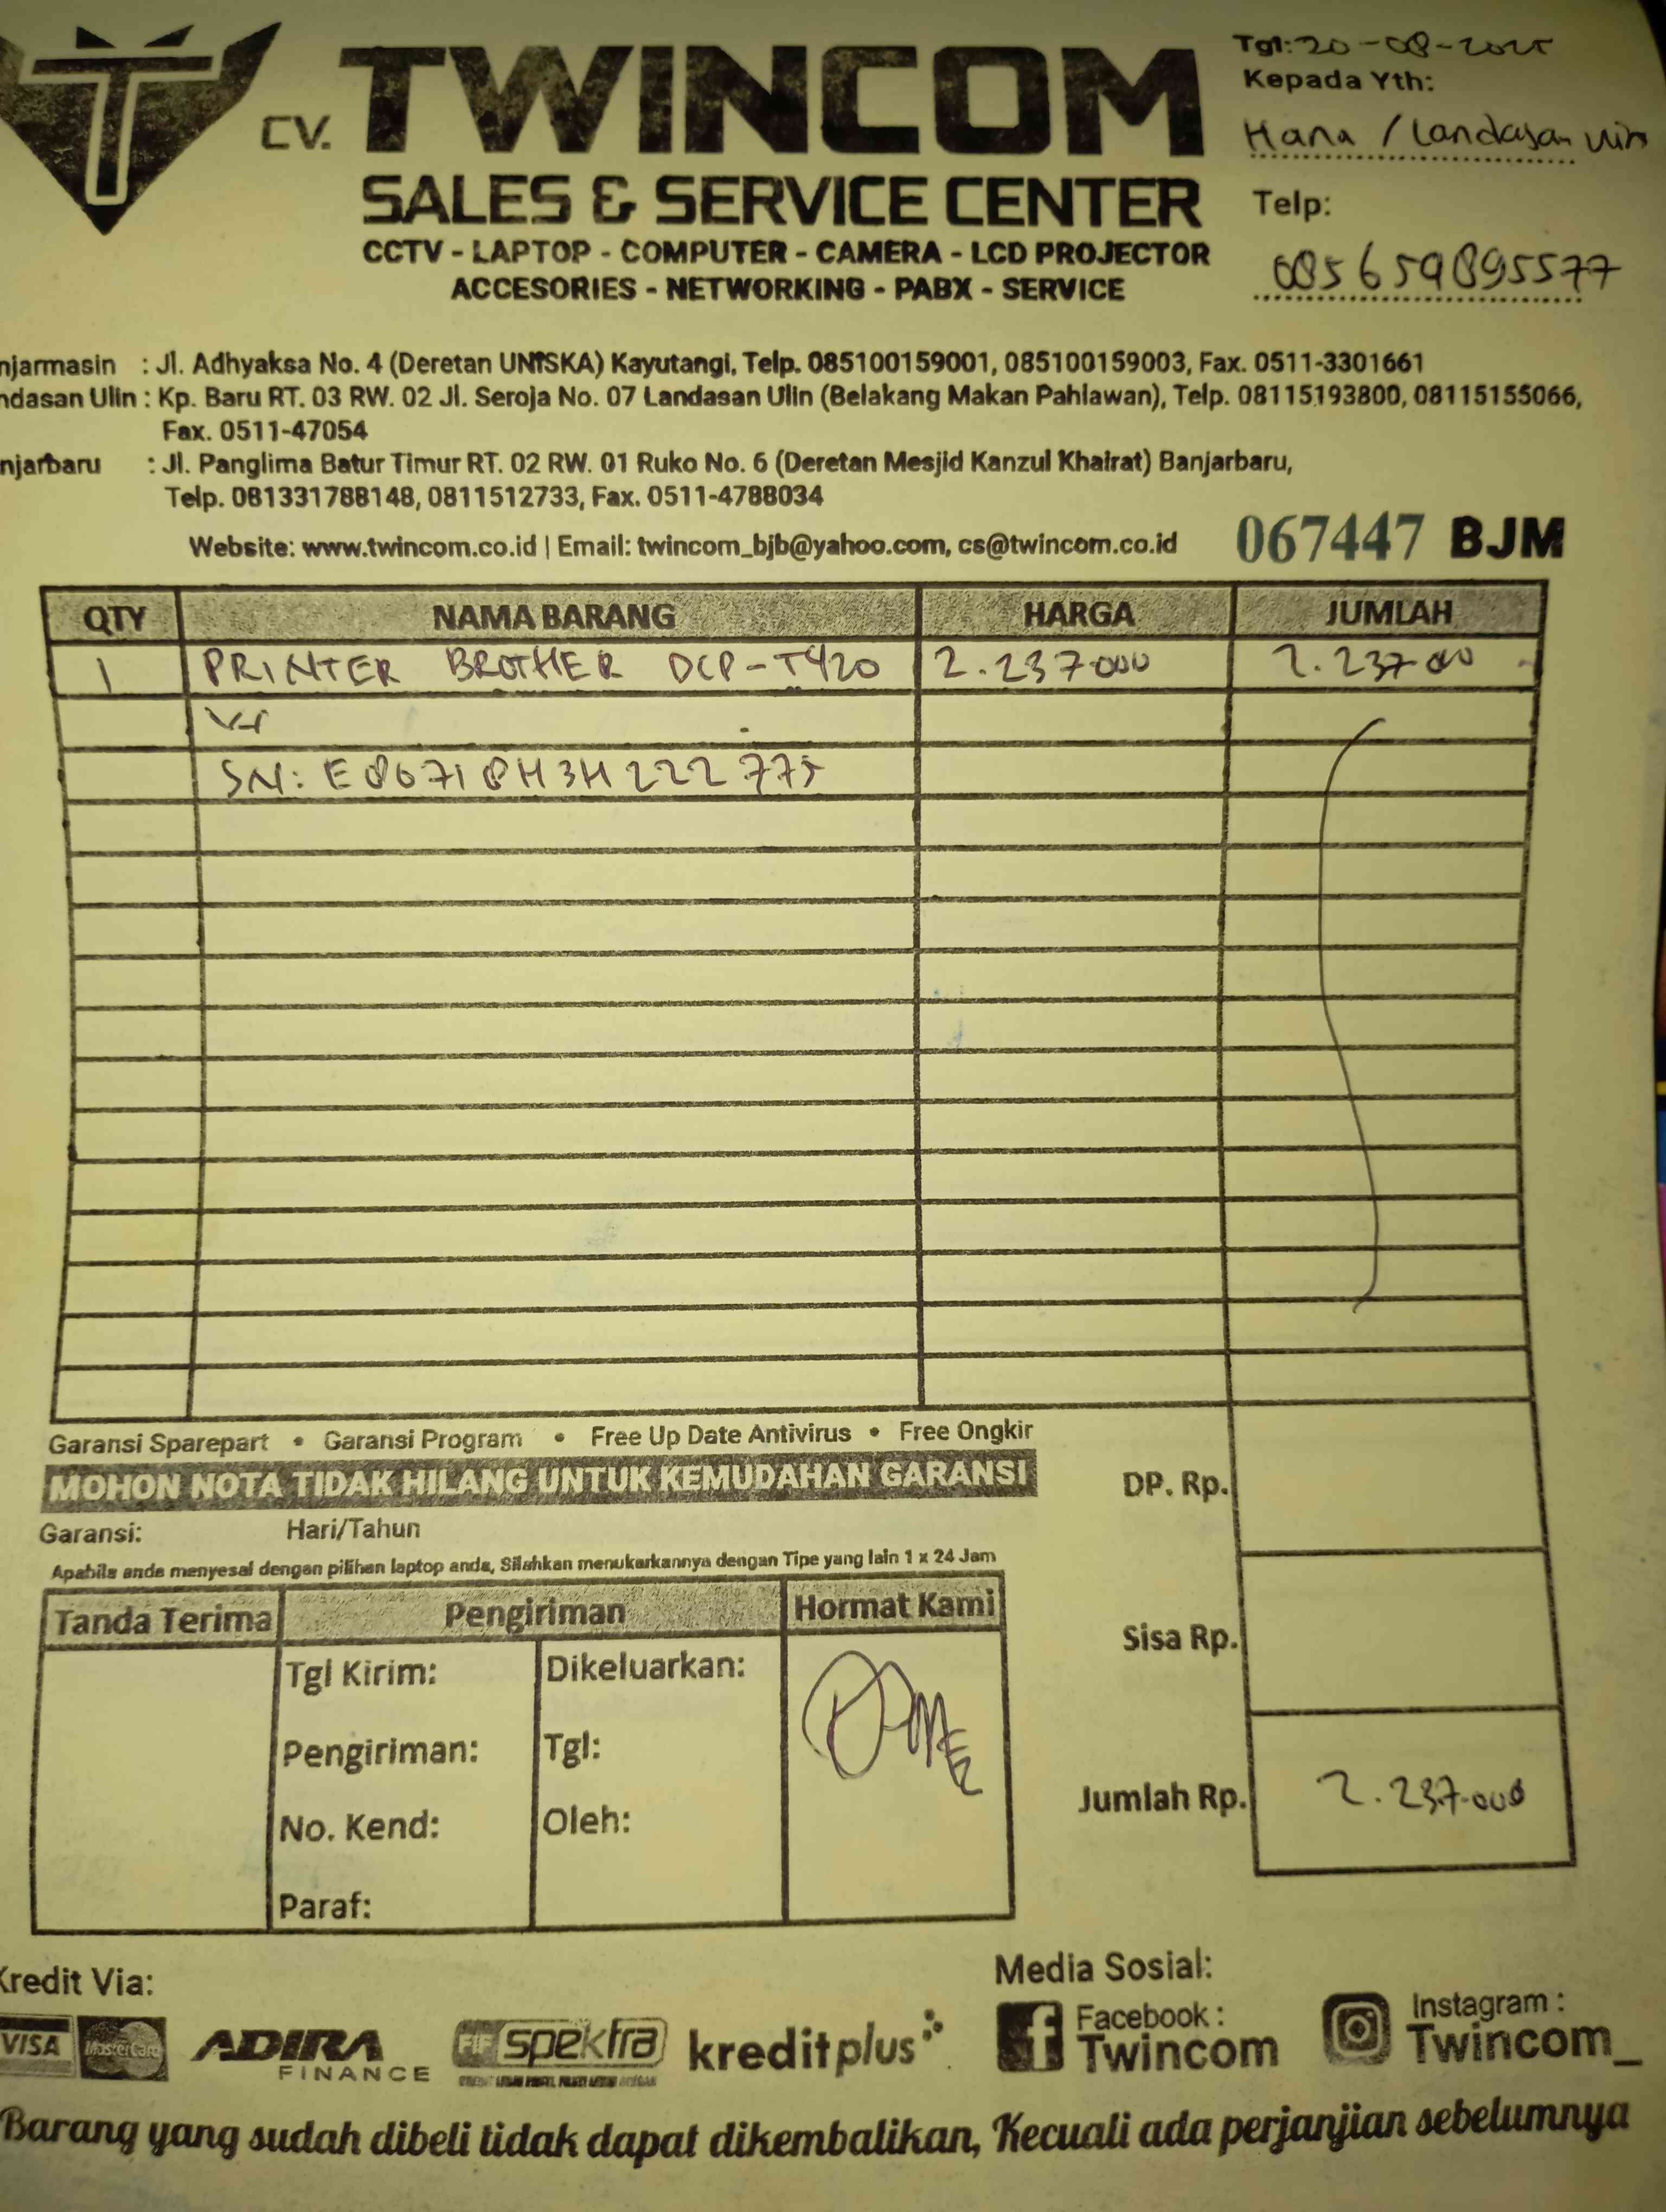 CV. TWINCOM
SALES & SERVICE CENTER
CCTV - LAPTOP - COMPUTER - CAMERA - LCD PROJECTOR
ACCESORIES - NETWORKING - PABX - SERVICE
Tgl: 20-08-2025
Kepada Yth:
Hana / Landasan Ulin
Telp:
085659895577
njarmasin : Jl. Adhyaksa No. 4 (Deretan UNISKA) Kayutangi, Telp. 085100159001, 085100159003, Fax. 0511-3301661
ndasan Ulin : Kp. Baru RT. 03 RW. 02 Jl. Seroja No. 07 Landasan Ulin (Belakang Makan Pahlawan), Telp. 08115193800, 08115155066,
Fax. 0511-47054
njarbaru : Jl. Panglima Batur Timur RT. 02 RW. 01 Ruko No. 6 (Deretan Mesjid Kanzul Khairat) Banjarbaru,
Telp. 081331788148, 0811512733, Fax. 0511-4788034
Website: www.twincom.co.id | Email: twincom_bjb@yahoo.com, cs@twincom.co.id
067447 BJM
QTY NAMA BARANG HARGA JUMLAH
1 PRINTER BROTHER DCP-T420 2.237.000 2.237.000
SN: E80718H3H222775
Garansi Sparepart • Garansi Program • Free Up Date Antivirus • Free Ongkir
MOHON NOTA TIDAK HILANG UNTUK KEMUDAHAN GARANSI
Garansi: Hari/Tahun
Apabila anda menyesal dengan pilihan laptop anda, Silahkan menukarkannya dengan Tipe yang lain 1 x 24 Jam
DP. Rp.
Sisa Rp.
Jumlah Rp. 2.237.000
Tanda Terima Pengiriman Hormat Kami
Tgl Kirim: Dikeluarkan:
Pengiriman: Tgl:
No. Kend: Oleh:
Paraf:
Kredit Via:
VISA MasterCard ADIRA FINANCE FIF spektra kreditplus
Media Sosial:
Facebook :
Twincom
Instagram :
Twincom_
Barang yang sudah dibeli tidak dapat dikembalikan, Kecuali ada perjanjian sebelumnya